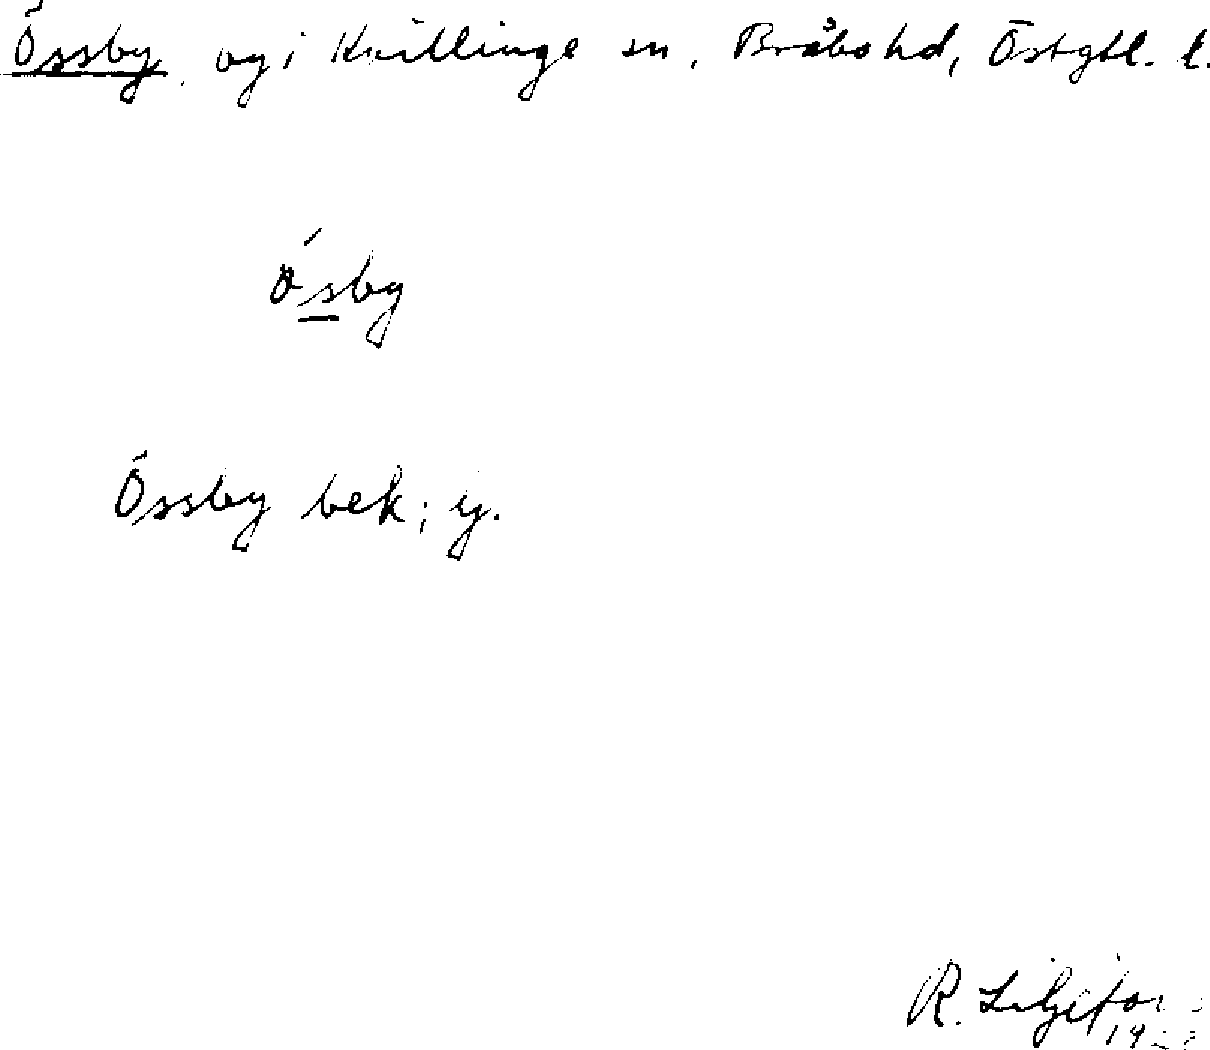 Össby, by i Kvillinge sn, Bråbo hd, Östgtl. l.
ö́sby
Össby bek; y.
R. Liljefors